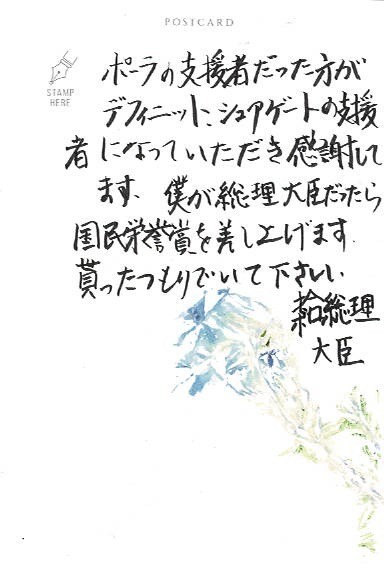 POSTCARD
STAMP
HERE
ポーラの支援者だった方が
デフィニット、シュアゲートの支援
者になっていただき感謝して
ます、僕が総理大臣だったら
国民栄誉賞を差し上げます.
貰ったつもりでいて下さい
総理
大臣